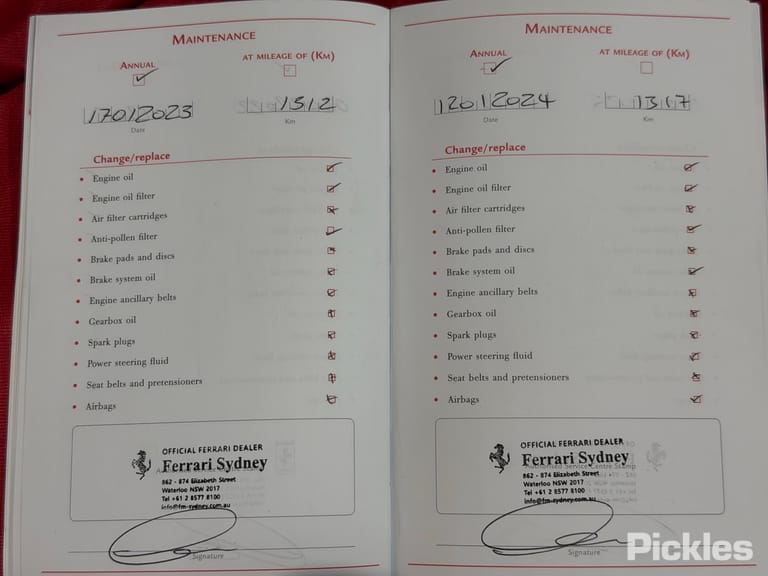 MAINTENANCE
ANNUAL
AT MILEAGE OF (KM)
17012023
1512
Date
Km
Change/replace
Engine oil
Engine oil filter
Air filter cartridges
Anti-pollen filter
Brake pads and discs
Brake system oil
Engine ancillary belts
Gearbox oil
Spark plugs
Power steering fluid
Seat belts and pretensioners
Airbags
OFFICIAL FERRARI DEALER
Ferrari Sydney
862 - 874 Elizabeth Street
Waterloo NSW 2017
Tel +61 2 8577 8100
info@fm-sydney.com.au
Signature
MAINTENANCE
ANNUAL
AT MILEAGE OF (KM)
12012024
1317
Date
Km
Change/replace
Engine oil
Engine oil filter
Air filter cartridges
Anti-pollen filter
Brake pads and discs
Brake system oil
Engine ancillary belts
Gearbox oil
Spark plugs
Power steering fluid
Seat belts and pretensioners
Airbags
OFFICIAL FERRARI DEALER
Ferrari Sydney
Authorised Service Centre Stamp
862 - 874 Elizabeth Street
Waterloo NSW 2017
Tel +61 2 8577 8100
info@fm-sydney.com.au
Signature
Pickles